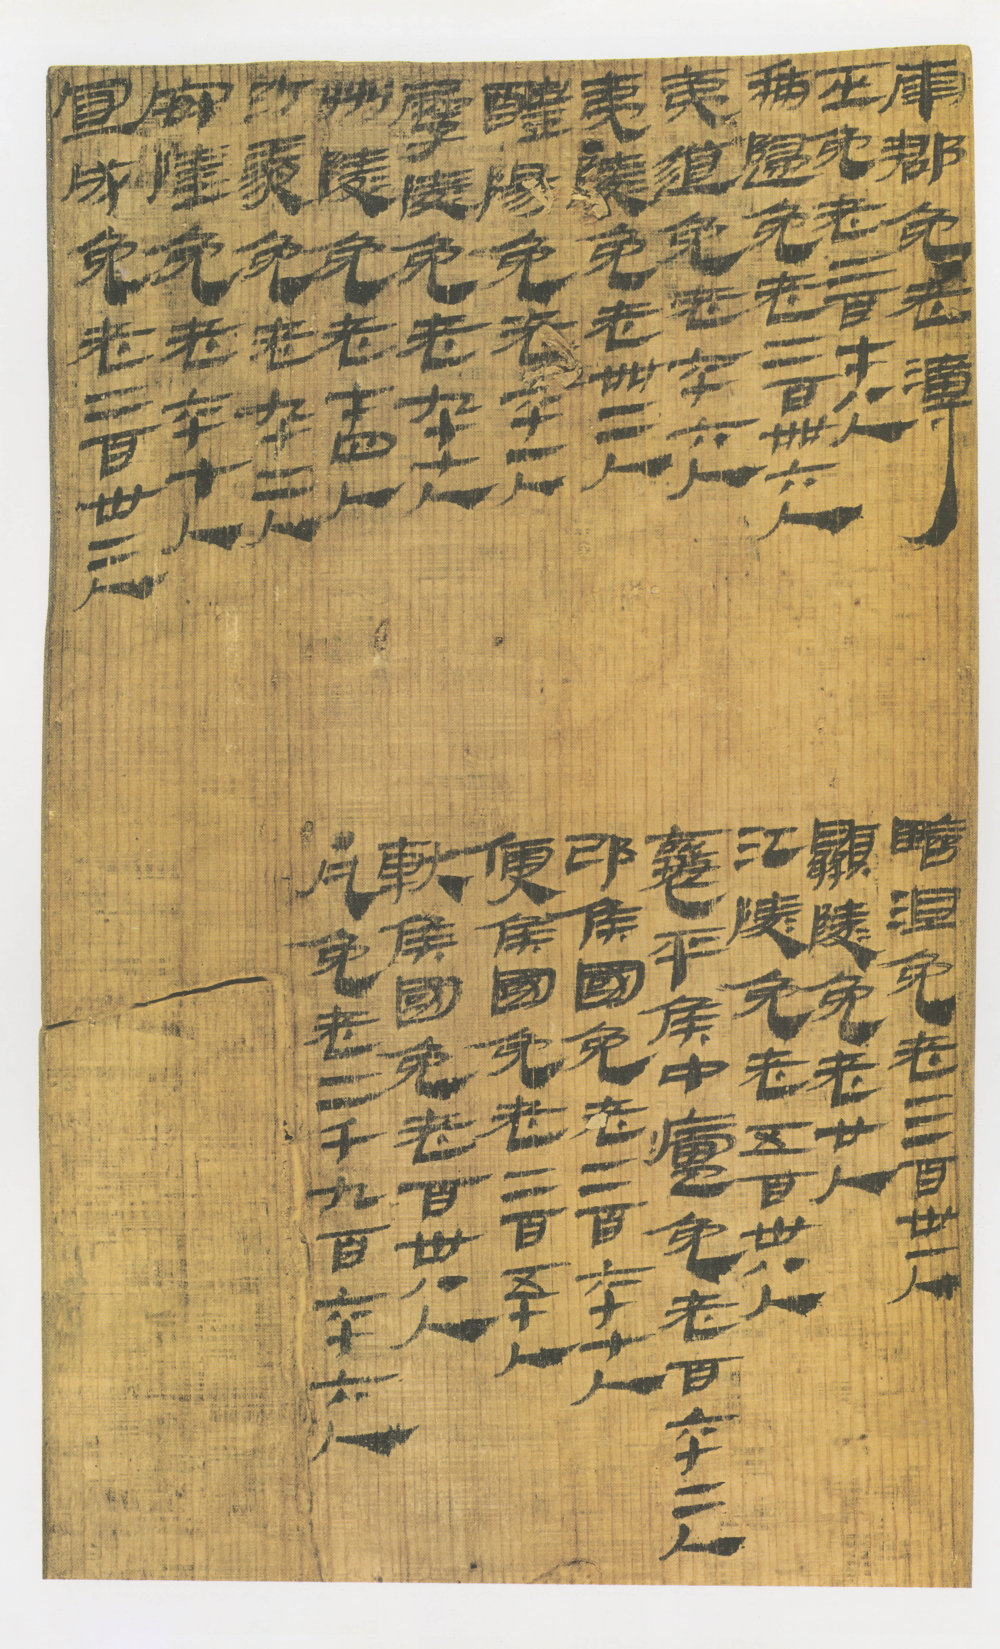 南郡免老簿
巫免老二百七十八人
秭歸免老二百卌六人
夷道免老六十六人
夷陵免老卌二人
醴陽免老六十一人
孱陵免老九十七人
州陵免老七十四人
沙羡免老九十二人
安陸免老六十七人
宜成免老二百卅二人
臨沮免老三百卅一人
顯陵免老廿人
江陵免老五百卅八人
襄平侯中廬免老百六十二人
邔侯國免老二百六十七人
便侯國免老二百五十人
軑侯國免老百卅八人
·凡免老二千九百六十六人